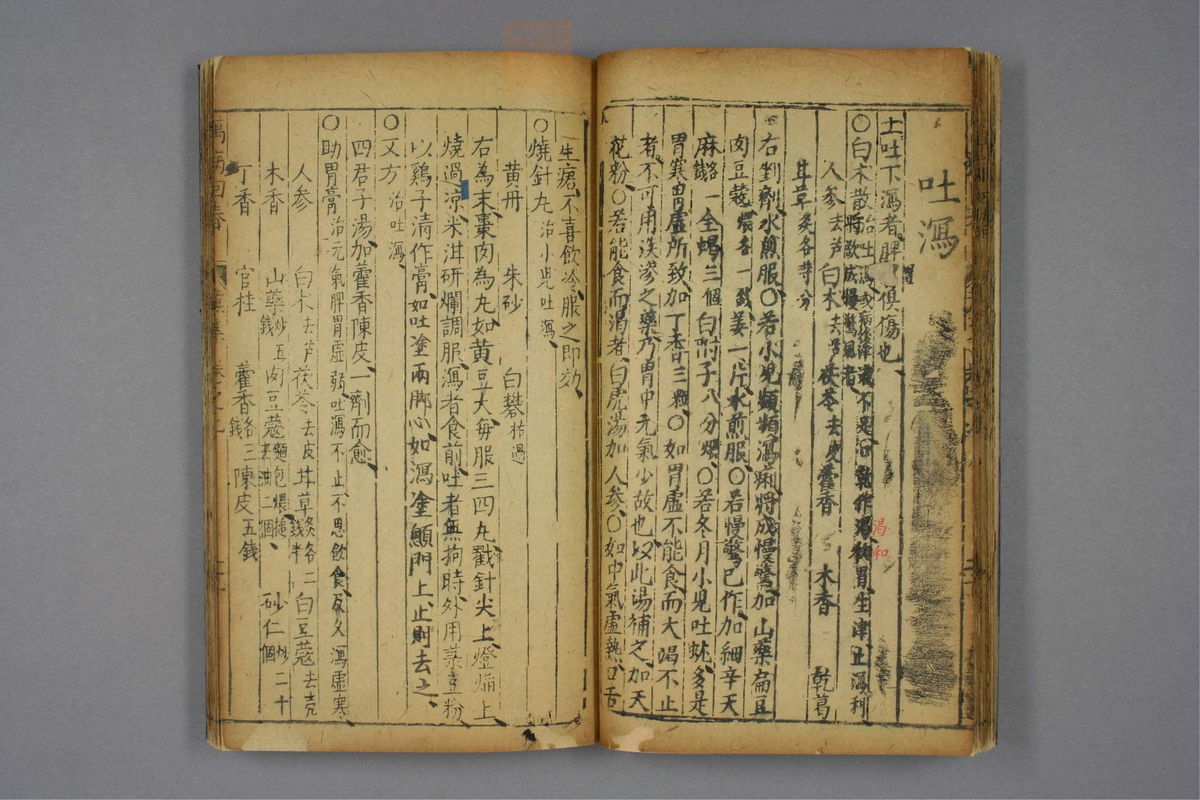 吐瀉
上吐下瀉者脾胃俱傷也
○白朮散治吐瀉或病後津液不足口乾作渴和胃生津止瀉利
將欲成慢驚風者
渴和
人參去芦 白朮去芦 茯苓去皮 藿香 木香 乾葛
甘草炙各等分
右剉劑水煎服○若小兒頻頻瀉痢將成慢驚加山藥扁豆
肉豆蔻煨各一錢姜一片水煎服○若慢驚已作加細辛天
麻各一錢全蝎三個白附子八分煨○若冬月小兒吐蚘多是
胃寒胃虛所致加丁香三粒○如胃虛不能食而大渴不止
者不可用淡滲之藥乃胃中元氣少故也以此湯補之加天
花粉○若能食而渴者白虎湯加人參○如中氣虛熱口舌
生瘡不喜飲冷服之即効
○燒針丸治小兒吐瀉
黄丹 朱砂 白礬枯過
右為末棗肉為丸如黄豆大每服三四丸戳針尖上燈焔上
燒過涼米泔研爛調服瀉者食前吐者無拘時外用菉豆粉
以鷄子清作膏如吐塗兩脚心如瀉塗顖門上止則去之
○又方治吐瀉
四君子湯加藿香陳皮一劑而愈
○助胃膏治元氣脾胃虛弱吐瀉不止不思飲食及久瀉虛寒
人參 白朮去芦 茯苓去皮 甘草炙各二錢半 白豆蔻去壳
木香 山藥炒五錢 肉豆蔻麵包煨搥去油二個 砂仁炒二十個
丁香 官桂 藿香各三錢 陳皮五錢
萬病回春